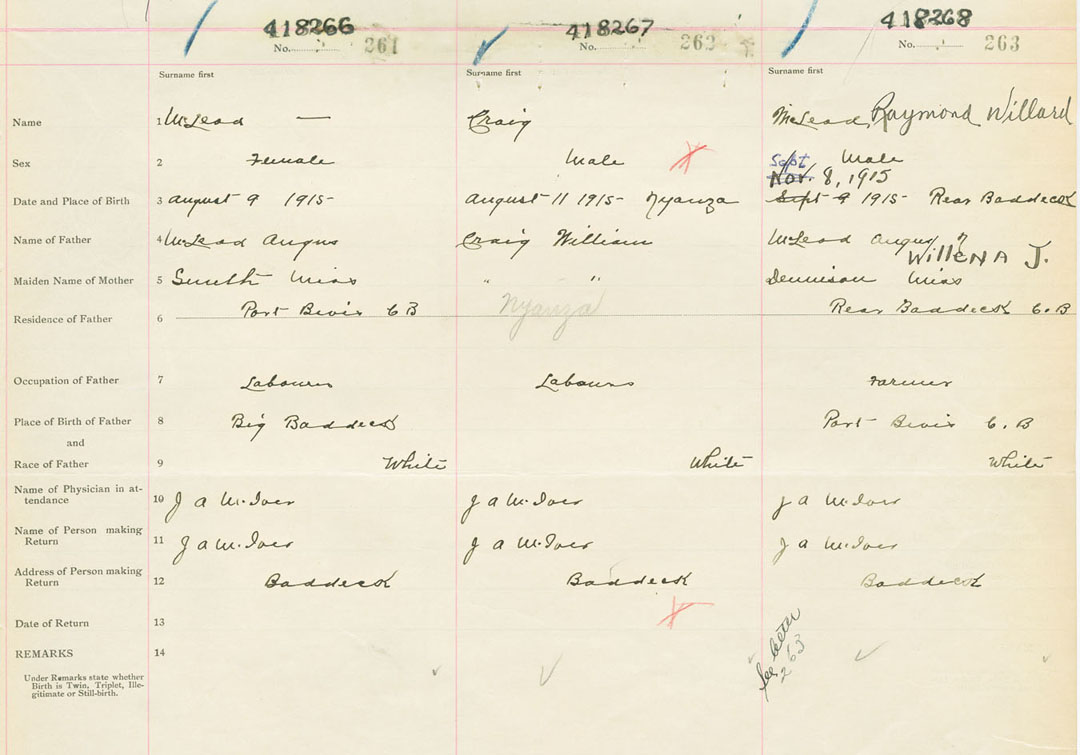 418266 418267 418268
No. 261 No. 262 No. 263
Surname first Surname first Surname first
Name 1 McLead — Craig McLead, Raymond Willard
Sex 2 Female Male Sept Male
Nov. 8, 1915
Date and Place of Birth 3 august 9 1915- august 11 1915- Nyanza Sept 9 1915- Rear Baddeck
Name of Father 4 McLead Angus Craig William McLead Angus
Willena J.
Maiden Name of Mother 5 Smith Miss " " Dennison Miss
Residence of Father 6 Port Bevis C B Nyanza Rear Baddeck C. B
Occupation of Father 7 Labourer Labourer Farmer
Place of Birth of Father 8 Big Baddeck Port Bevis C. B
and
Race of Father 9 White White White
Name of Physician in at-
tendance 10 J a McIver J a McIver J a McIver
Name of Person making
Return 11 J a McIver J a McIver J a McIver
Address of Person making
Return 12 Baddeck Baddeck Baddeck
Date of Return 13
REMARKS 14
See letter
263
Under Remarks state whether
Birth is Twin, Triplet, Ille-
gitimate or Still-birth.